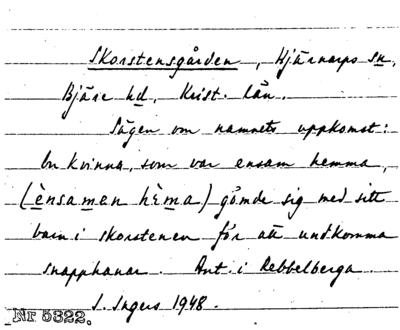 Skorstensgården, Hjärnarps sn,
Bjäre hd, Krist. län.
Sägen om namnets uppkomst:
En kvinna, som var ensam hemma,
(ènsamen hèma) gömde sig med sitt
barn i skorstenen för att undkomma
snapphanar. Ant. i Rebbelberga
I. Ingers 1948.
Nr 5322.